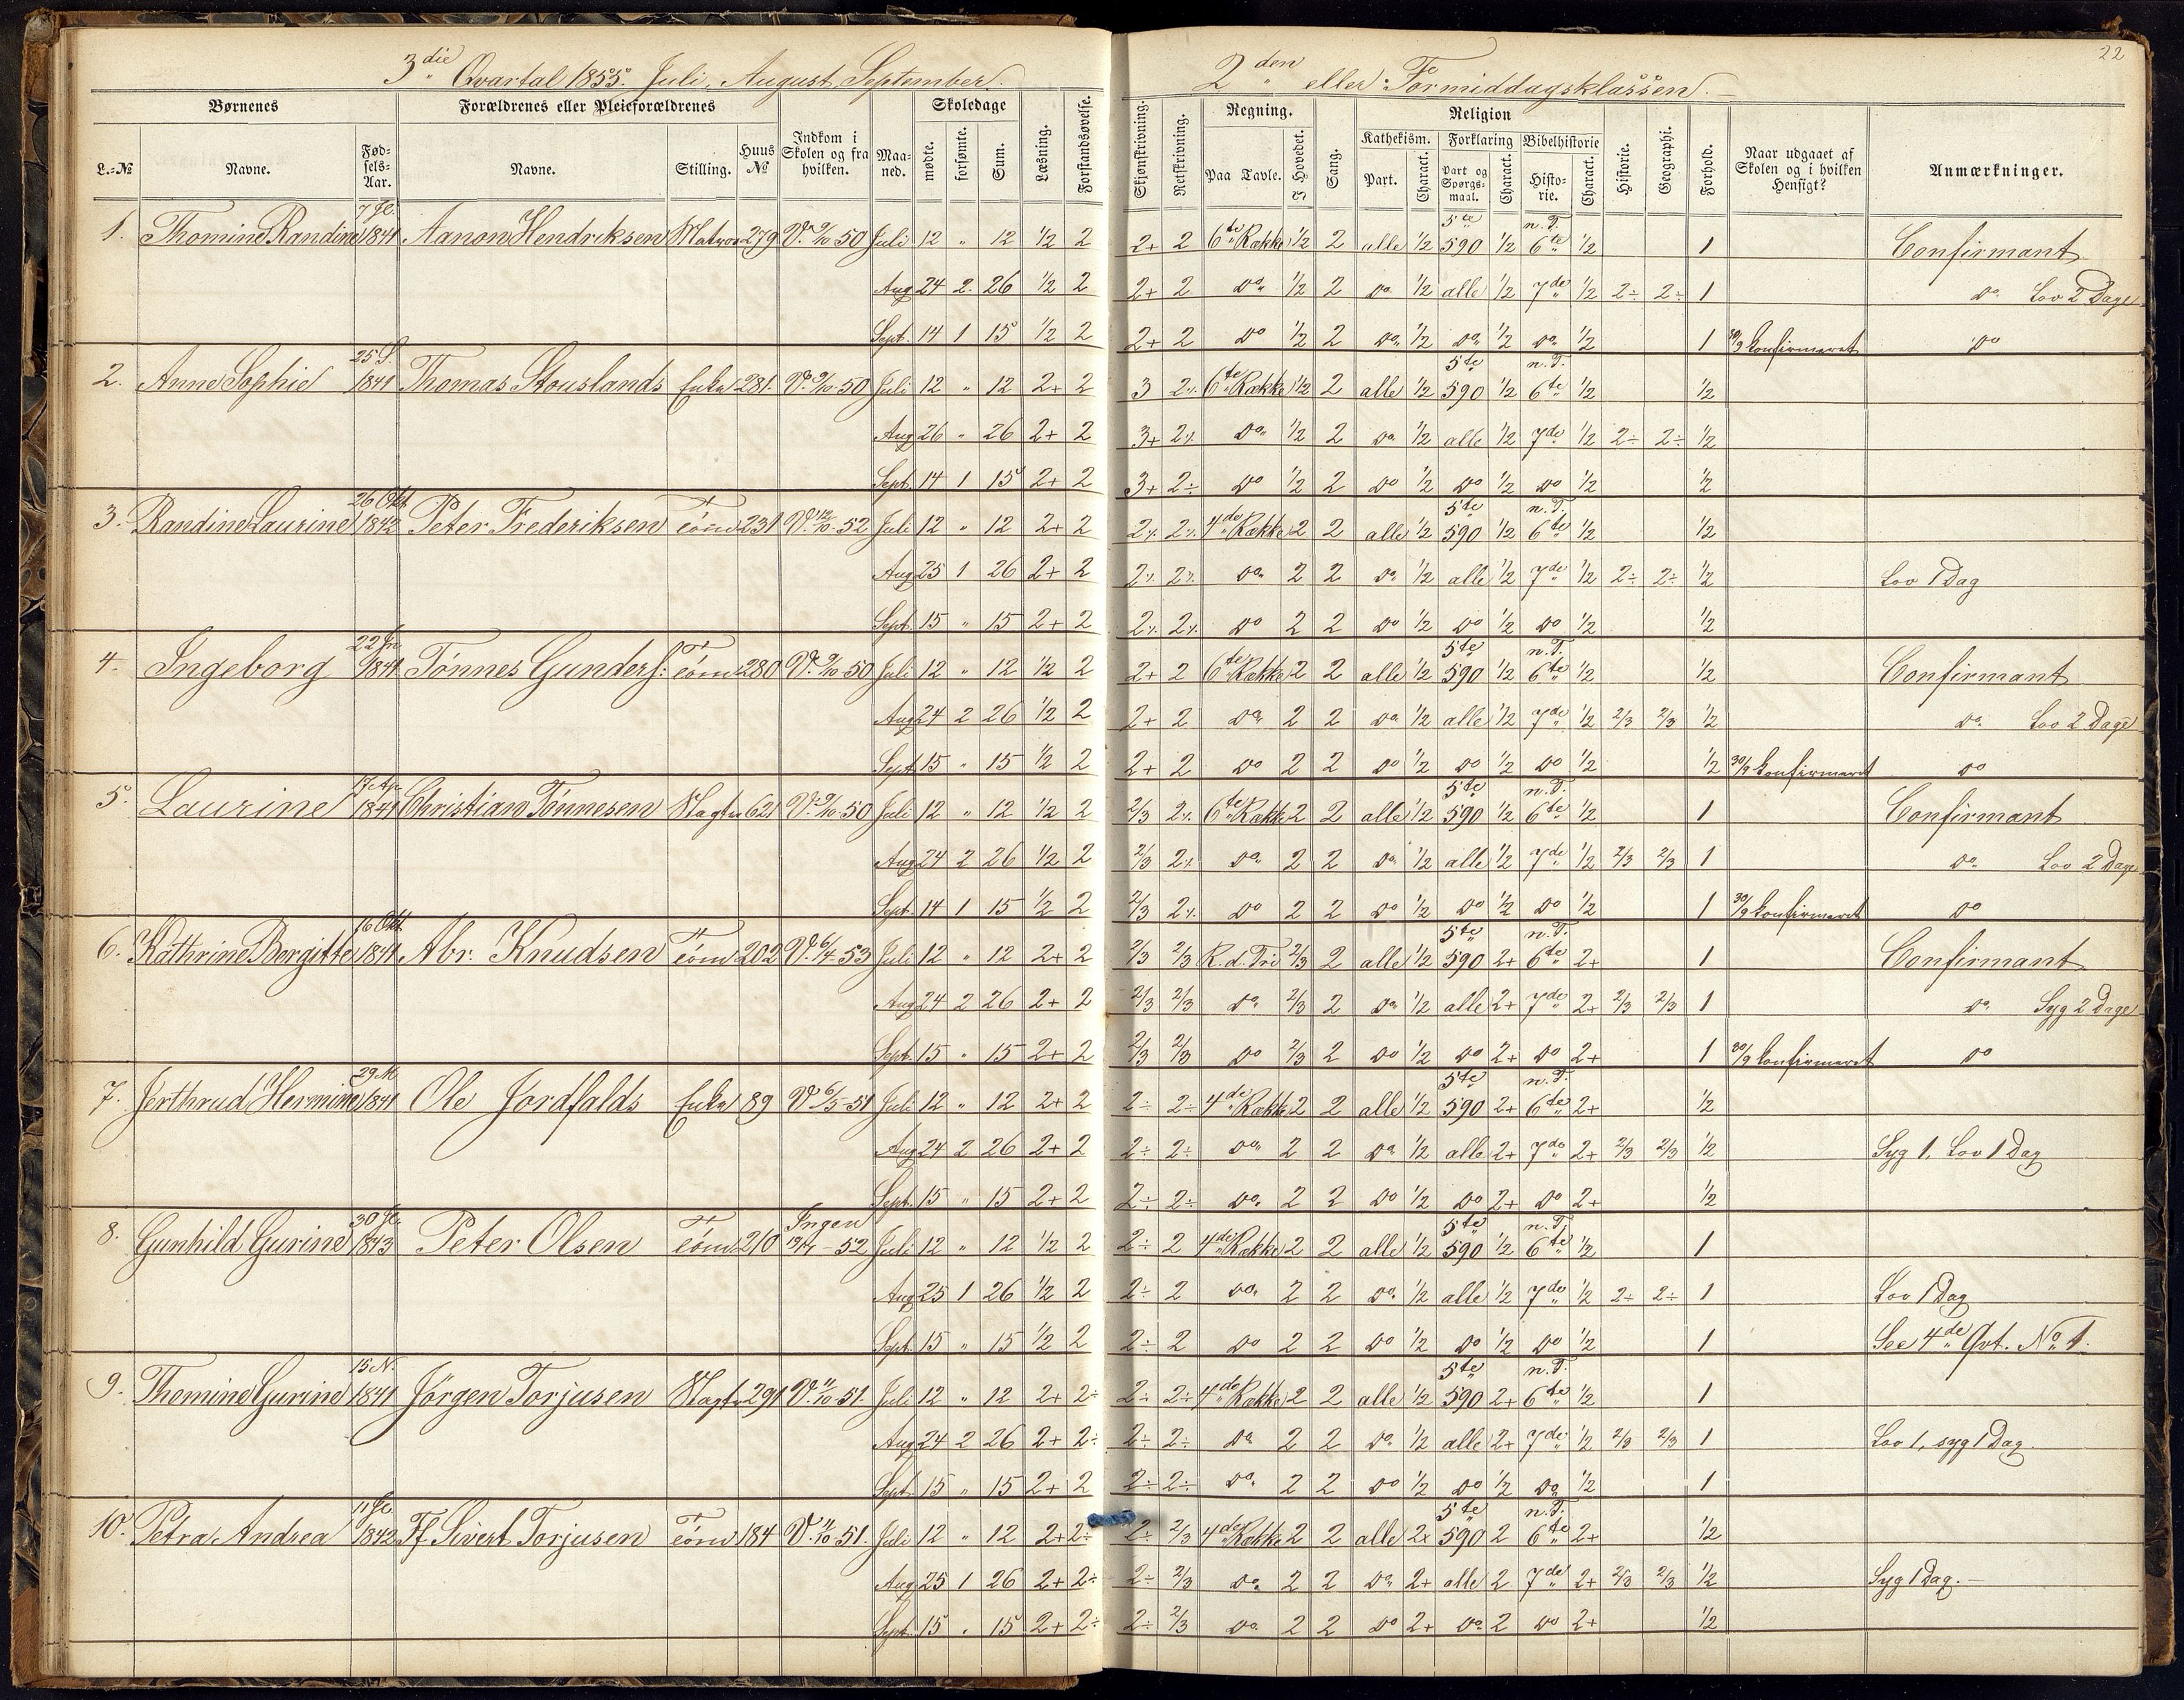 22
3die Qvartal 1855. Juli, August, September.
2den eller Formiddagsklassen.
Børnenes | Forældrenes eller Pleieforældrenes | Indkom i Skolen og fra hvilken. | Maaned. | Skoledage | Læsning. | Forstandsøvelse. | Skjønskrivning. | Retskrivning. | Regning. | Sang. | Religion | Historie. | Geographi. | Forhold. | Naar udgaaet af Skolen og i hvilken Hensigt? | Anmærkninger.
L.-№ | Navne. | Fødsels-Aar. | Navne. | Stilling. | Huus № | mødte. | forsømte. | Sum. | Paa Tavle. | I Hovedet. | Kathekism. | Forklaring | Bibelhistorie
Part. | Charact. | Part og Spørgsmaal. | Charact. | Historie. | Charact.
1. Thomine Randine 7 Jl. 1841 Aanon Hendriksen Matros 279 V. 9/10 50 Juli 12 " 12 1/2 2 2+ 2 6te Række 1/2 2 alle 1/2 5te 590 1/2 n.T. 6te 1/2 1 Confirmant
Aug 24 2 26 1/2 2 2+ 2 do 1/2 2 do 1/2 alle 1/2 7de 1/2 2÷ 2÷ 1 do Lov 2 Dage
Sept. 14 1 15 1/2 2 2+ 2 do 1/2 2 do 1/2 do 1/2 do 1/2 1 30/9 Konfirmeret do
2. Anne Sophie 25 S. 1841 Thomas Stouslands Enke 281 V. 9/10 50 Juli 12 " 12 2+ 2 3 2÷ 6te Række 1/2 2 alle 1/2 5te 590 1/2 n.T. 6te 1/2 1/2
Aug 26 " 26 2+ 2 3+ 2÷ do 1/2 2 do 1/2 alle 1/2 7de 1/2 2÷ 2÷ 1/2
Sept. 14 1 15 2+ 2 3+ 2÷ do 1/2 2 do 1/2 do 1/2 do 1/2 1/2
3. Randine Laurine 26 Okt 1842 Peter Frederiksen Tømm 231 V. 12/10 52 Juli 12 " 12 2+ 2 2÷ 2÷ 4de Række 2 2 alle 1/2 5te 590 1/2 n.T. 6te 1/2 1/2
Aug 25 1 26 2+ 2 2÷ 2÷ do 2 2 do 1/2 alle 1/2 7de 1/2 2÷ 2÷ 1/2 Lov 1 Dag
Sept. 15 " 15 2+ 2 2÷ 2÷ do 2 2 do 1/2 do 1/2 do 1/2 1/2
4. Ingeborg 22 Jn 1841 Tónnes Gunders: Tømm 280 V. 9/10 50 Juli 12 " 12 1/2 2 2+ 2 6te Række 2 2 alle 1/2 5te 590 1/2 n.T. 6te 1/2 1/2 Confirmant
Aug 24 2 26 1/2 2 2+ 2 do 2 2 do 1/2 alle 1/2 7de 1/2 2/3 2/3 1/2 do Lov 2 Dage
Sept 15 " 15 1/2 2 2+ 2 do 2 2 do 1/2 do 1/2 do 1/2 1/2 30/9 Konfirmeret do
5. Laurine 17 Ap. 1841 Christian Tónnesen 621 V. 9/10 50 Juli 12 " 12 1/2 2 2/3 2÷ 6te Række 2 2 alle 1/2 5te 590 1/2 n.T. 6te 1/2 1 Confirmant
Aug 24 2 26 1/2 2 2/3 2÷ do 2 2 do 1/2 alle 1/2 7de 1/2 2/3 2/3 1 do Lov 2 Dage
Sept. 14 1 15 1/2 2 2/3 2÷ do 2 2 do 1/2 do 1/2 do 1/2 1 30/9 Konfirmeret do
6. Kathrine Bergitte 16 Okt. 1841 Abr. Knudsen Tømm 202 V. 6/4 53 Juli 12 " 12 2+ 2 2/3 2/3 R. d. Tri 2/3 2 alle 1/2 5te 590 2+ n.T. 6te 2+ 1 Confirmant
Aug 24 2 26 2+ 2 2/3 2/3 do 2/3 2 do 1/2 alle 2+ 7de 2+ 2/3 2/3 1 do Syg 2 Dage
Sept. 15 " 15 2+ 2 2/3 2/3 do 2/3 2 do 1/2 do 2+ do 2+ 1 30/9 Konfirmeret do
7. Jerthrud Hermine 29 M 1841 Ole Jordfalds Enke 89 V. 6/5 51 Juli 12 " 12 2+ 2 2÷ 2÷ 4de Række 2 2 alle 1/2 5te 590 2+ n.T. 6te 2+ 1/2
Aug 24 2 26 2+ 2 2÷ 2÷ do 2 2 do 1/2 alle 2+ 7de 2+ 2/3 2/3 1/2 Syg 1, Lov 1 Dag
Sept. 15 " 15 2+ 2 2÷ 2÷ do 2 2 do 1/2 do 2+ do 2+ 1/2
8. Gunhild Gurine 30 Jl. 1843 Peter Olsen Tømm 210 Ingen 19/4 52 Juli 12 " 12 1/2 2 2÷ 2 4de Række 2 2 alle 1/2 5te 590 1/2 n.T. 6te 1/2 1
Aug 25 1 26 1/2 2 2÷ 2 do 2 2 do 1/2 alle 1/2 7de 1/2 2÷ 2÷ 1 Lov 1 Dag
Sept. 15 " 15 1/2 2 2÷ 2 do 2 2 do 1/2 do 1/2 do 1/2 1 See 4de Qvt. No 1.
9. Thomine Gurine 15 N. 1841 Jörgen Torjusen 291 V. 11/10 51. Juli 12 " 12 2+ 2÷ 2÷ 2÷ 4de Række 2 2 alle 1/2 5te 590 2+ n.T. 6te 1/2 1
Aug 24 2 26 2+ 2÷ 2÷ 2÷ do 2 2 do 1/2 alle 2+ 7de 1/2 2/3 2/3 1 Lov 1, syg 1 Dag.
Sept. 15 " 15 2+ 2 2÷ 2÷ do 2 2 do 1/2 do 1/2 do 1/2 1
10. Petra Andrea 11 Jl. 1842 Sivert Torjusen Tømm 184 V. 11/10 51. Juli 12 " 12 2+ 2÷ 2÷ 2/3 4de Række 2 2 alle 2+ 5te 590 2 n.T. 6te 2+ 1/2
Aug 25 1 26 2+ 2÷ 2÷ 2/3 do 2 2 do 2+ alle 2 7de 2+ 2/3 2/3 1/2 Syg 1 Dag.
Sept. 15 " 15 2+ 2÷ 2÷ 2/3 do 2 2 do 2+ do 2 do 2+ 1/2